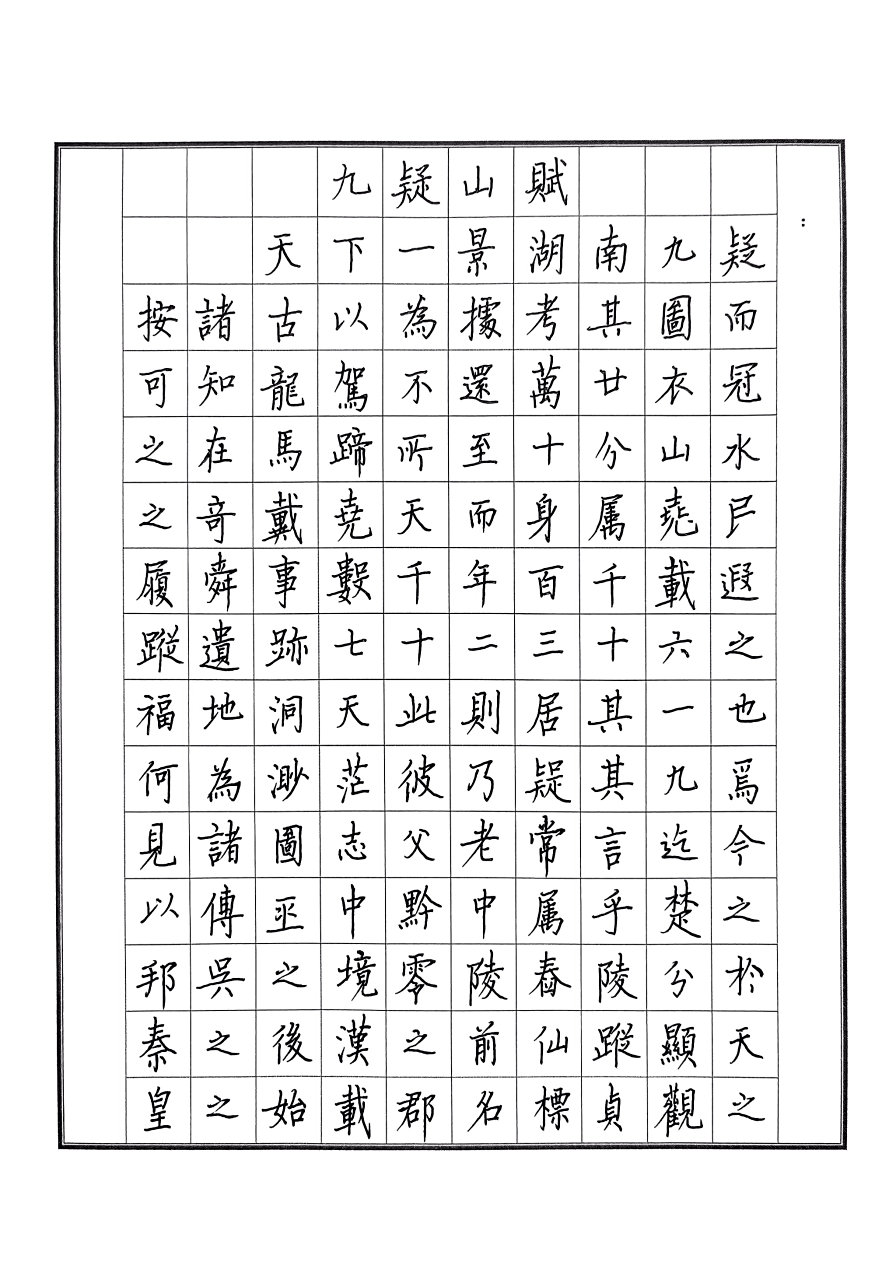 九疑山賦
天下一景湖南九疑
按諸古以為據考其圖而
可知龍駕不還萬廿衣冠
之在馬蹄所至十分山水
之奇戴堯天而身属堯民
履舜事數千年百千載遐
蹤遺跡七十二三十六之
福地洞天此則居其一也
何為渺茫彼乃疑其九焉
見諸圖志父老常言迄今
以傳巫中黔中属乎楚之
邦吳之境零陵舂陵分於
秦之後漢之前仙蹤顯天
皇之始載郡名標貞觀之